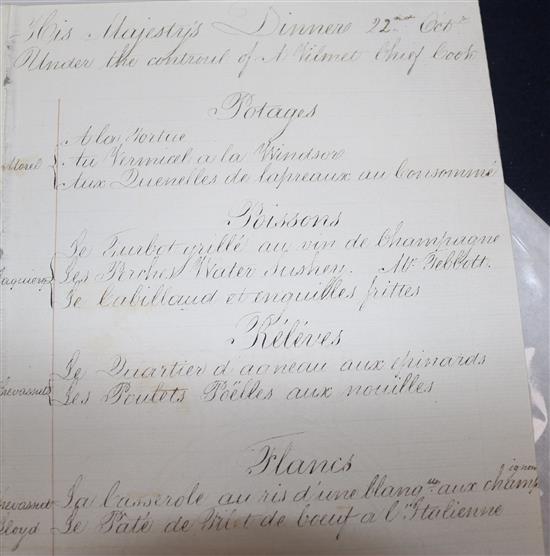 His Majesty's Dinner 22nd Octr
Under the controul of A Vilmet Chief Cook
Potages
A la Tortue
Morel Au Vermicel a la Windsor
Aux Quenelles de lapreaux au Consommé
Poissons
Le Turbot grillé au vin de Champagne
Les Perches Water Sushey. Mr. Tebbott.
Le Cabillaud et enguilles frittes
Réléves
Le Quartier d'agneau aux epinards
Chevassut Les Poulots Poëlles aux nouilles
Flancs
ignons
Chevassut La Casserole au ris d'une blangtte aux champ
Lloyd Le Paté de Filet de boeuf a l'Italienne